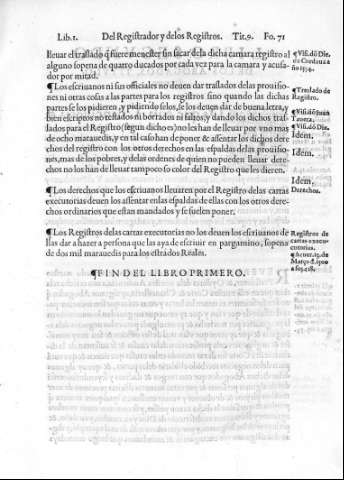 Lib.1. Del Registrador y delos Registros. Tit.9. Fo. 71
lleuar el traslado q̃ fuere menester sin sacar dela dicha camara registro al
alguno sopena de quatro ducados por cada vez para la camara y acusa-
dor por mitad.
¶Los escriuanos ni sus officiales no deuen dar traslados delas prouisio-
nes ni otras cosas a las partes para los registros sino quando las dichas
partes se los pidieren, y pidiendo selos, se los deuen dar de buena letra, y
bien escriptos no testados ni borrados ni faltos, y dando los dichos tras-
lados para el Registro (segun dicho es) no les han de lleuar por vno mas
de ocho marauedis, y en tal caso han de poner & assentar los dichos dere
chos del registro con los otros derechos en las espaldas delas prouisio-
nes, mas de los pobres, y delas ordenes de quien no pueden lleuar dere
chos no los han de lleuar tampoco so color del Registro que les dieren.
¶Los derechos que los escriuanos lleuaren por el Registro delas cartas
executorias deuen los assentar enlas espaldas de ellas con los otros dere-
chos ordinarios que estan mandados y se suelen poner.
¶Los Registros delas cartas executorias no los deuen los escriuanos de
llas dar a hazer a persona que las aya de escriuir en pargamino, sopena
de dos mil marauedis para los estrados Reales.
¶FIN DEL LIBRO PRIMERO.
Traslado de
Registro.
Idem.
Idem.
Idem.
Derechos.
Registros de
cartas execu-
cutorias.